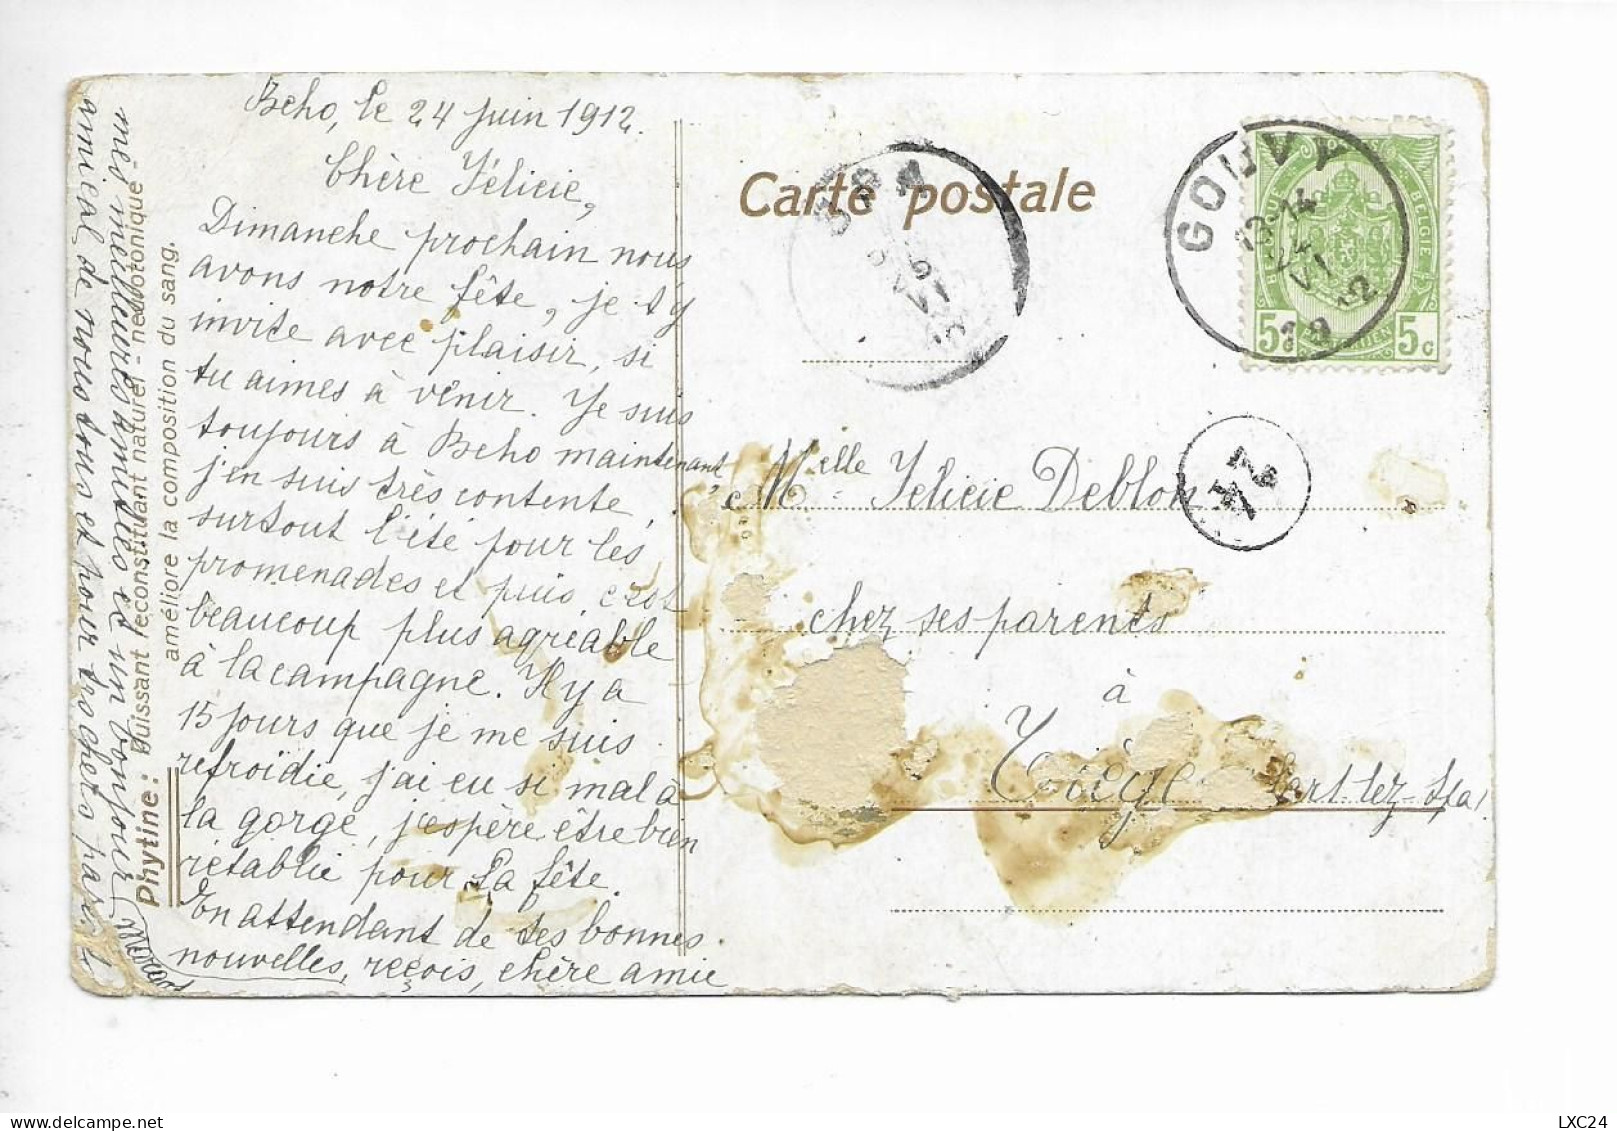 Beho, le 24 juin 1912.
Chère Félicie,
Dimanche prochain nous
avons notre fête, je t'y
invite avec plaisir, si
tu aimes à venir. Je suis
toujours à Beho maintenant,
j'en suis très contente,
surtout l'été pour les
promenades et puis, c'est
beaucoup plus agréable
à la campagne. Il y a
15 jours que je me suis
refroidie, j'ai eu si mal à
la gorge, j'espère être bien
rétablie pour la fête.
En attendant de tes bonnes
nouvelles, reçois, chère amie
mes meilleures amitiés et un bonjour
amical de nous tous et pour tes chers parents
Phytine: Puissant reconstituant naturel - neurotonique
améliore la composition du sang.
Carte postale
GOUVY
13-14
24
VI
1912
BELGIQUE
POSTES
BELGIE
5c
5c
SPA
VI
Melle Félicie Deblon
chez ses parents
à
Tiège
Sart lez-Spa
LXC24